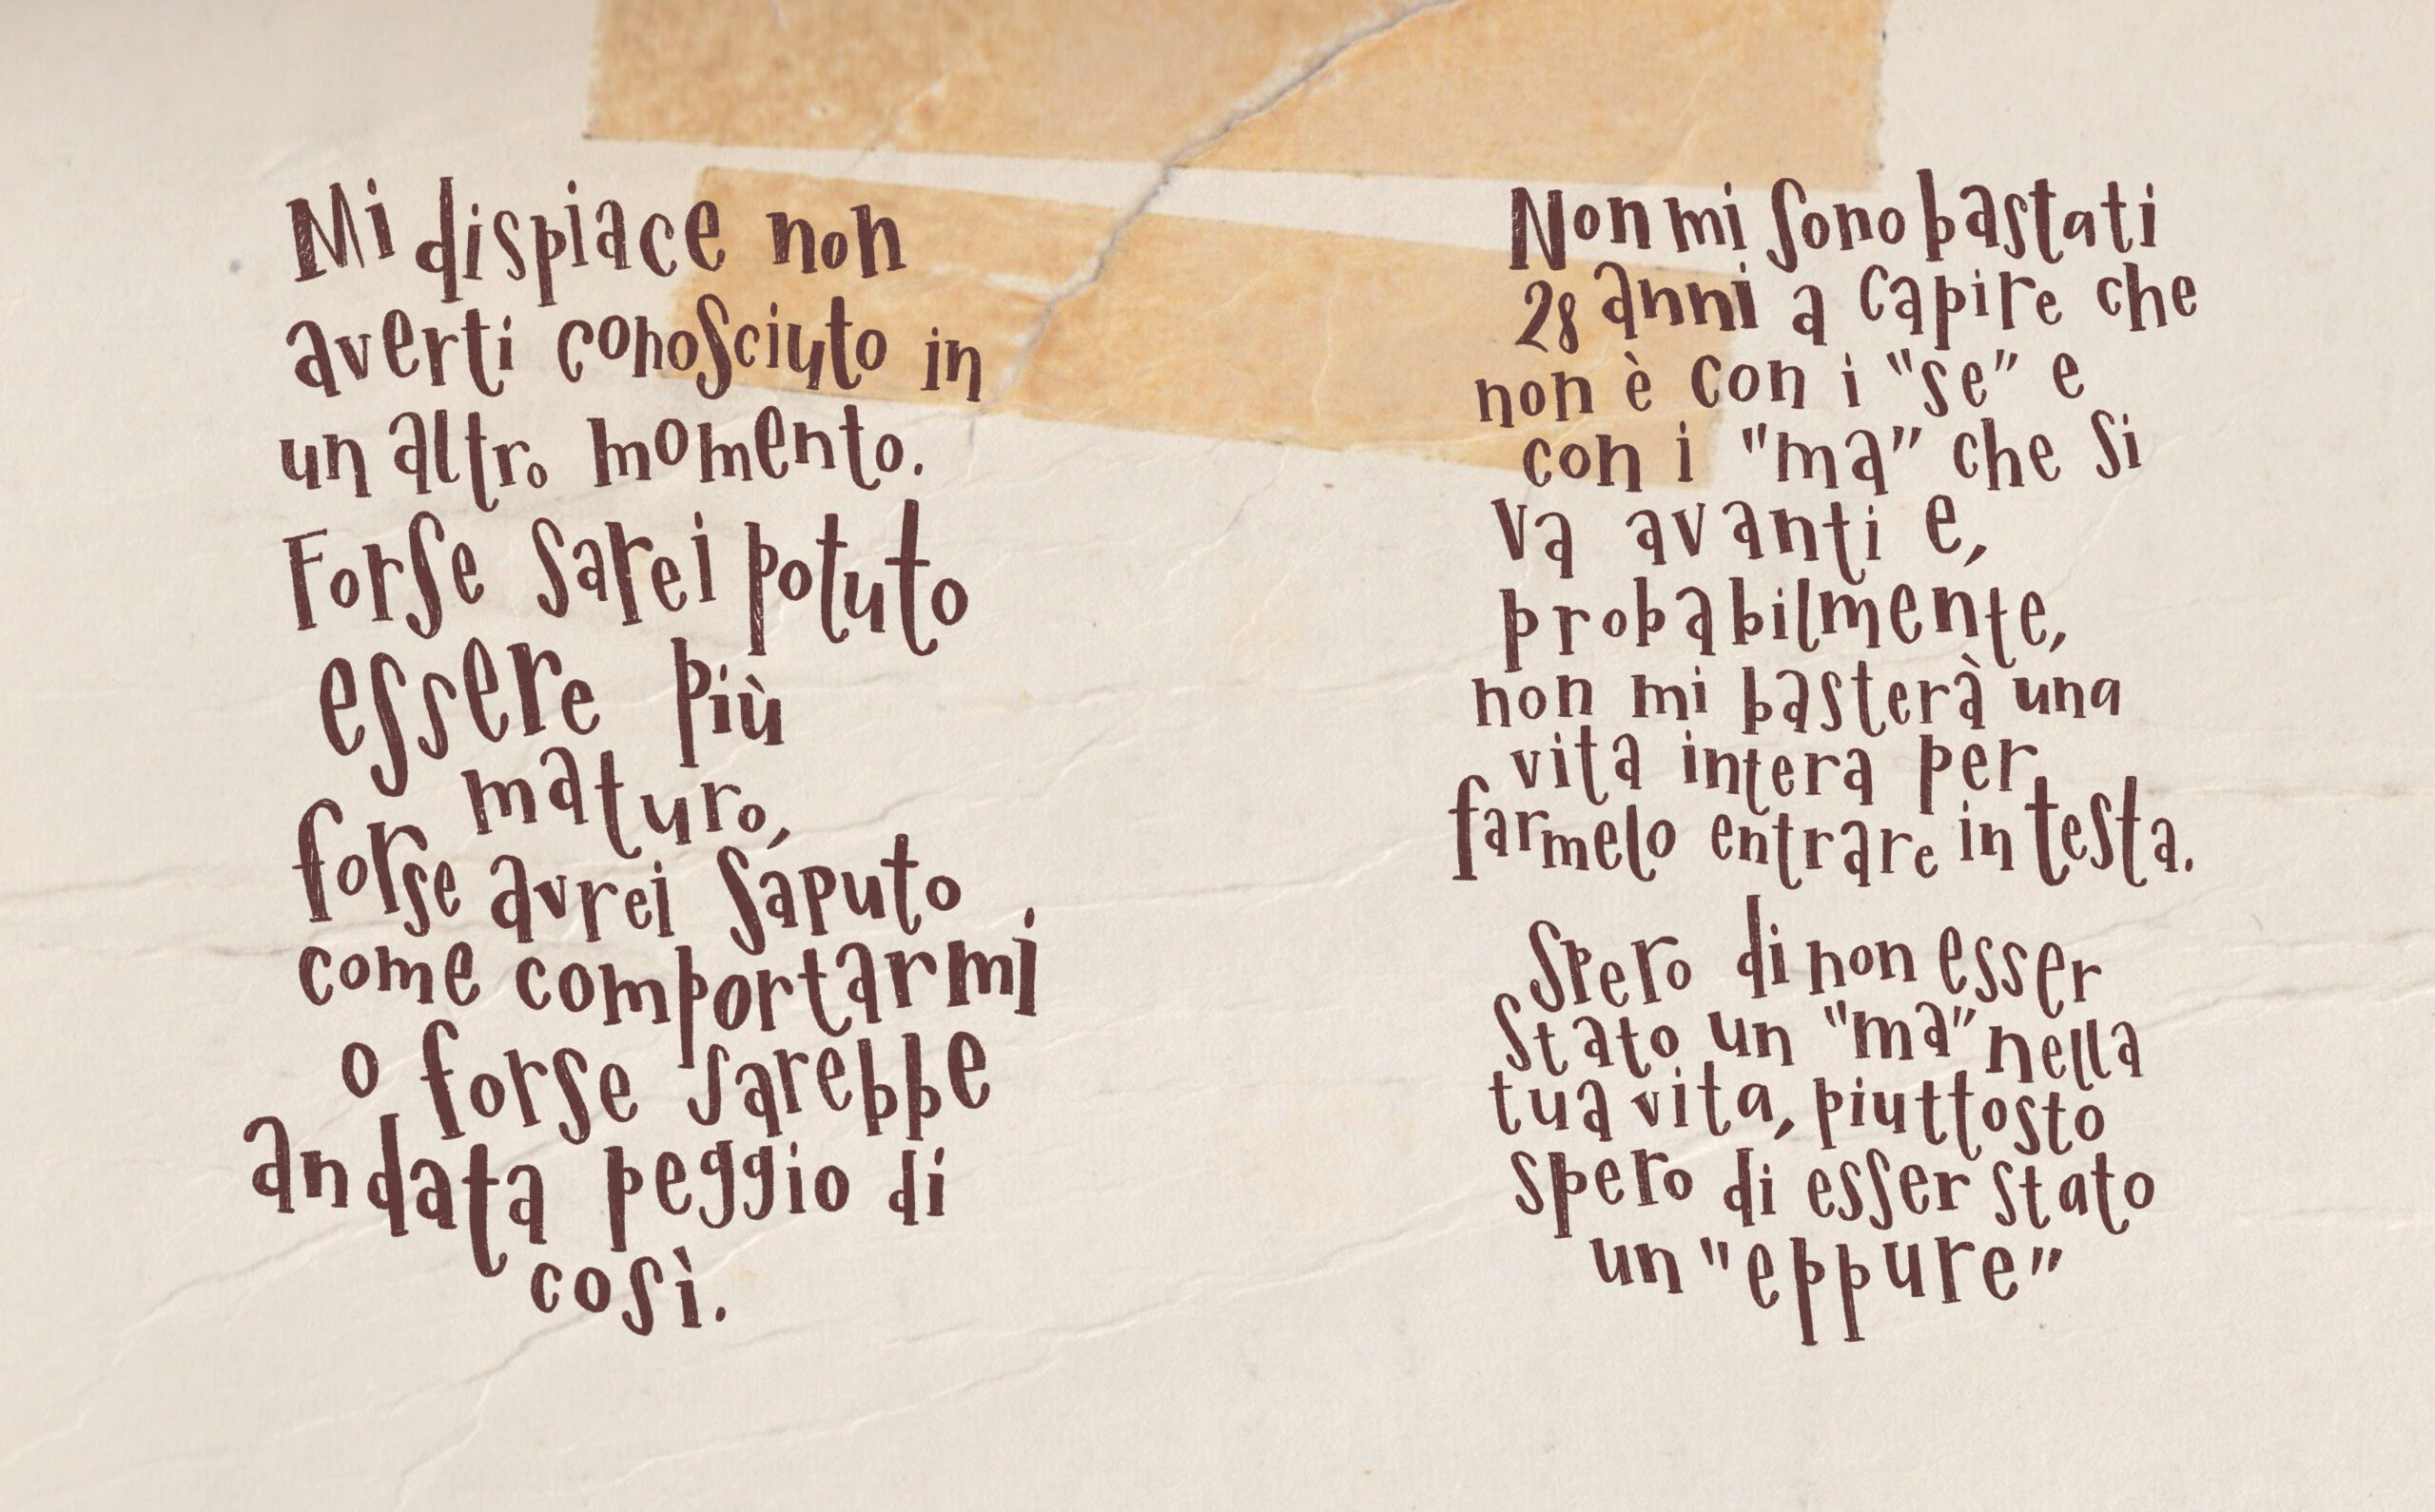 Mi dispiace non
averti conosciuto in
un altro momento.
Forse sarei potuto
essere più
maturo,
forse avrei saputo
come comportarmi
o forse sarebbe
andata peggio di
così.
Non mi sono bastati
28 anni a capire che
non è con i "se" e
con i "ma" che si
va avanti e,
probabilmente,
non mi basterà una
vita intera per
farmelo entrare in testa.
Spero di non esser
stato un "ma" nella
tua vita, piuttosto
spero di esser stato
un "eppure"